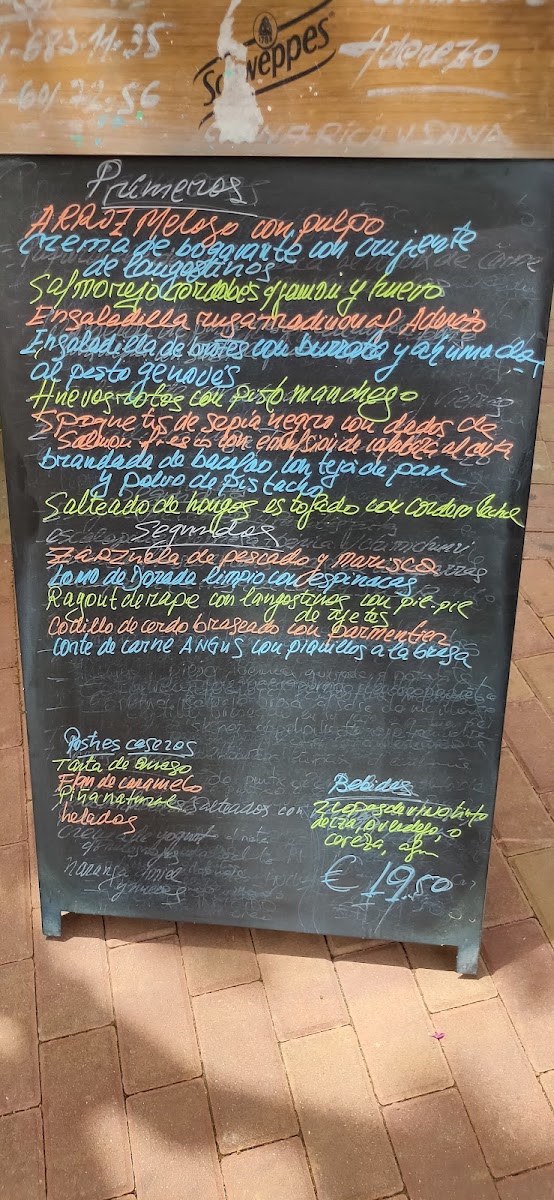 683-11-35
Schweppes
Aderezo
601-72-56
RICA Y SANA
Primeros
ARROZ Meloso con pulpo
Crema de bogavante con crujiente
de langostinos
Salmorejo cordobes y jamon y huevo
Ensaladilla rusa tradicional Aderezo
Ensaladilla de brotes con burrata y ahumada
al pesto genoves
Huevos rotos con pisto manchego
Spaguetis de sepia negro con dados de
Salmon fresco con emulsion de
brandada de bacalao con teja de pan
y polvo de pistacho
Salteado de hongos estofado con cordero
Segundos
Zarzuela de pescado y marisco
Lomo de Dorada limpio con espinacas
Ragout de rape con langostinos con pie-pie
de ajetes
Codillo de cerdo braseado con parmentier
Corte de carne ANGUS con piquillos a la brasa
Postres caseros
Tarta de queso
Flan de caramelo
Piña natural
helados
Bebidas
2 copas de vino tinto
de la, o verdejo, o
cereza, agua
€ 19.50